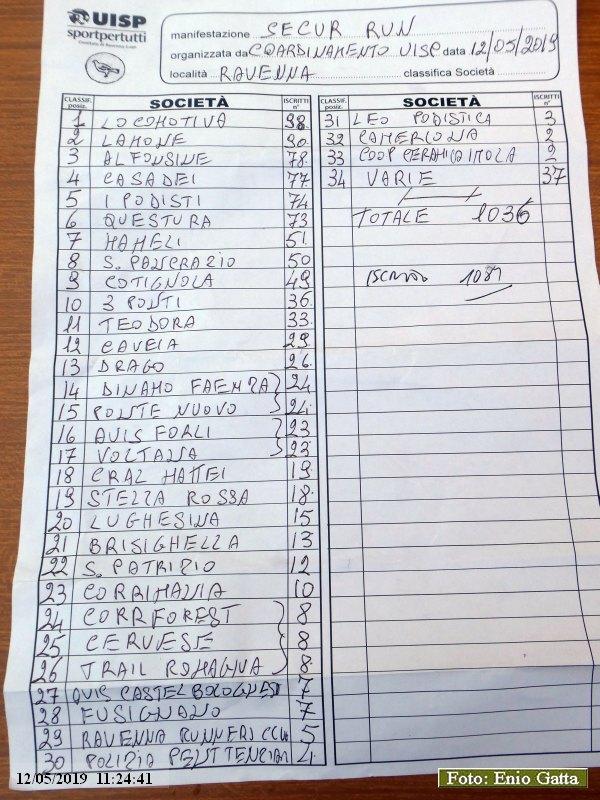 UISP
sportpertutti
manifestazione SECUR RUN
organizzata da COORDINAMENTO UISP data 12/05/2019
località RAVENNA classifica Società
CLASSIF. posiz. SOCIETÀ ISCRITTI n°
1 LOCOMOTIVA 98
2 LAMONE 90
3 ALFONSINE 78
4 CASADEI 77
5 I PODISTI 74
6 QUESTURA 73
7 MAMELI 51
8 S. PANCRAZIO 50
9 COTIGNOLA 49
10 3 PONTI 36
11 TEODORA 33
12 CAVEIA 29
13 DRAGO 26
14 DINAMO FAENZA 24
15 PONTE NUOVO 24
16 AVIS FORLI 23
17 VOLTANA 23
18 CRAL MATTEI 19
19 STELLA ROSSA 18
20 LUGHESINA 15
21 BRISIGHELLA 13
22 S. PATRIZIO 12
23 CORRIMANIA 10
24 CORRFOREST 8
25 CERVESE 8
26 TRAIL ROMAGNA 8
27 AVIS CASTEL BOLOGNESE 7
28 FUSIGNANO 7
29 RAVENNA RUNNERS CLU 5
30 POLIZIA PENITENZIAR 4
CLASSIF. posiz. SOCIETÀ ISCRITTI n°
31 LEO PODISTICA 3
32 CAMERLONA 2
33 COOP CERAMICA IMOLA 2
34 VARIE 37
TOTALE 1036
12/05/2019 11:24:41
Foto: Enio Gatta